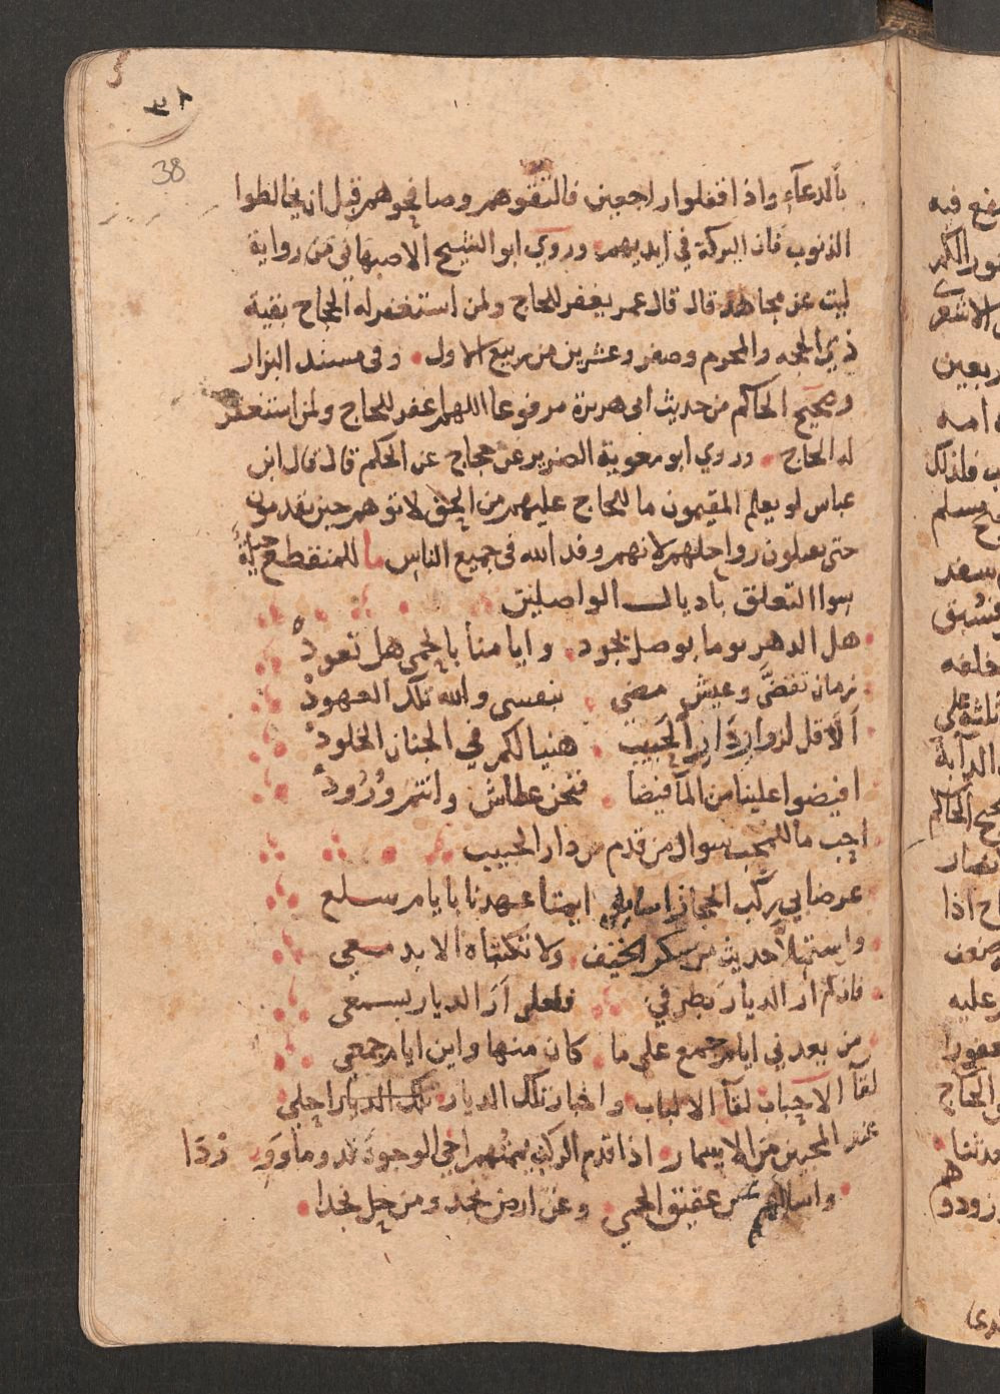 ٣٨
38
بالدعآء واذا قفلوا راجعين فالتقوهم وصافحوهم قبل ان يخالطوا
الذنوب فان البركة في ايديهم وروي ابو الشيخ الاصبهاني من رواية
ليث عن مجاهد قال قال عمر يغفر للحاج ولمن استغفر له الحاج بقية
ذي الحجه والمحرم وصفر وعشرين من ربيع الاول وفى مسند البزار
وصحيح الحاكم من حديث ابى هريرة مرفوعا اللهم اغفر للحاج ولمن استغفر
له الحاج وروي ابو معوية الضرير عن حجاج عن الحكم قال قال ابن
عباس لو يعلم المقيمون ما للحاج عليهم من الحق لاتوهم حين يقدمون
حتى يقبلون رواحلهم لانهم وفد الله فى جميع الناس ما للمنقطع حيلة
سوا التعلق باديال الواصلين
هل الدهر يوما بوصل يجود وايامنا بالحمى هل تعود
زمان تقضى وعيش مضى بنفسى والله تلك العهود
ألا قل لزوار دار الحبيب هنيا لكم في الجنان الخلود
افيضوا علينا من المآ فيضا فنحن عطاش وانتم ورود
احب ما للمحب سوال من قدم من دار الحبيب
عرضا بي ركب الحجاز اسايله ايمتا عهدنا بايام سلع
واستملا حديث من سكن الخيف ولا تكتباه الا بدمعي
فاتنى ان ارا الديار بطرفي فلعلى ارا الديار بسمعى
من يعد لي ايام جمع على ما كان منها واين ايام جمعى
لقآ الاحباب لقآ الالباب واخبار تلك الديار احلي
عند المحبين من الاسمار اذا قدم الركب يممتهم احى الوجوه قدوما ووردا
واسالهم عن عقيق الحمى وعن ارض نجد ومن حل نجدا